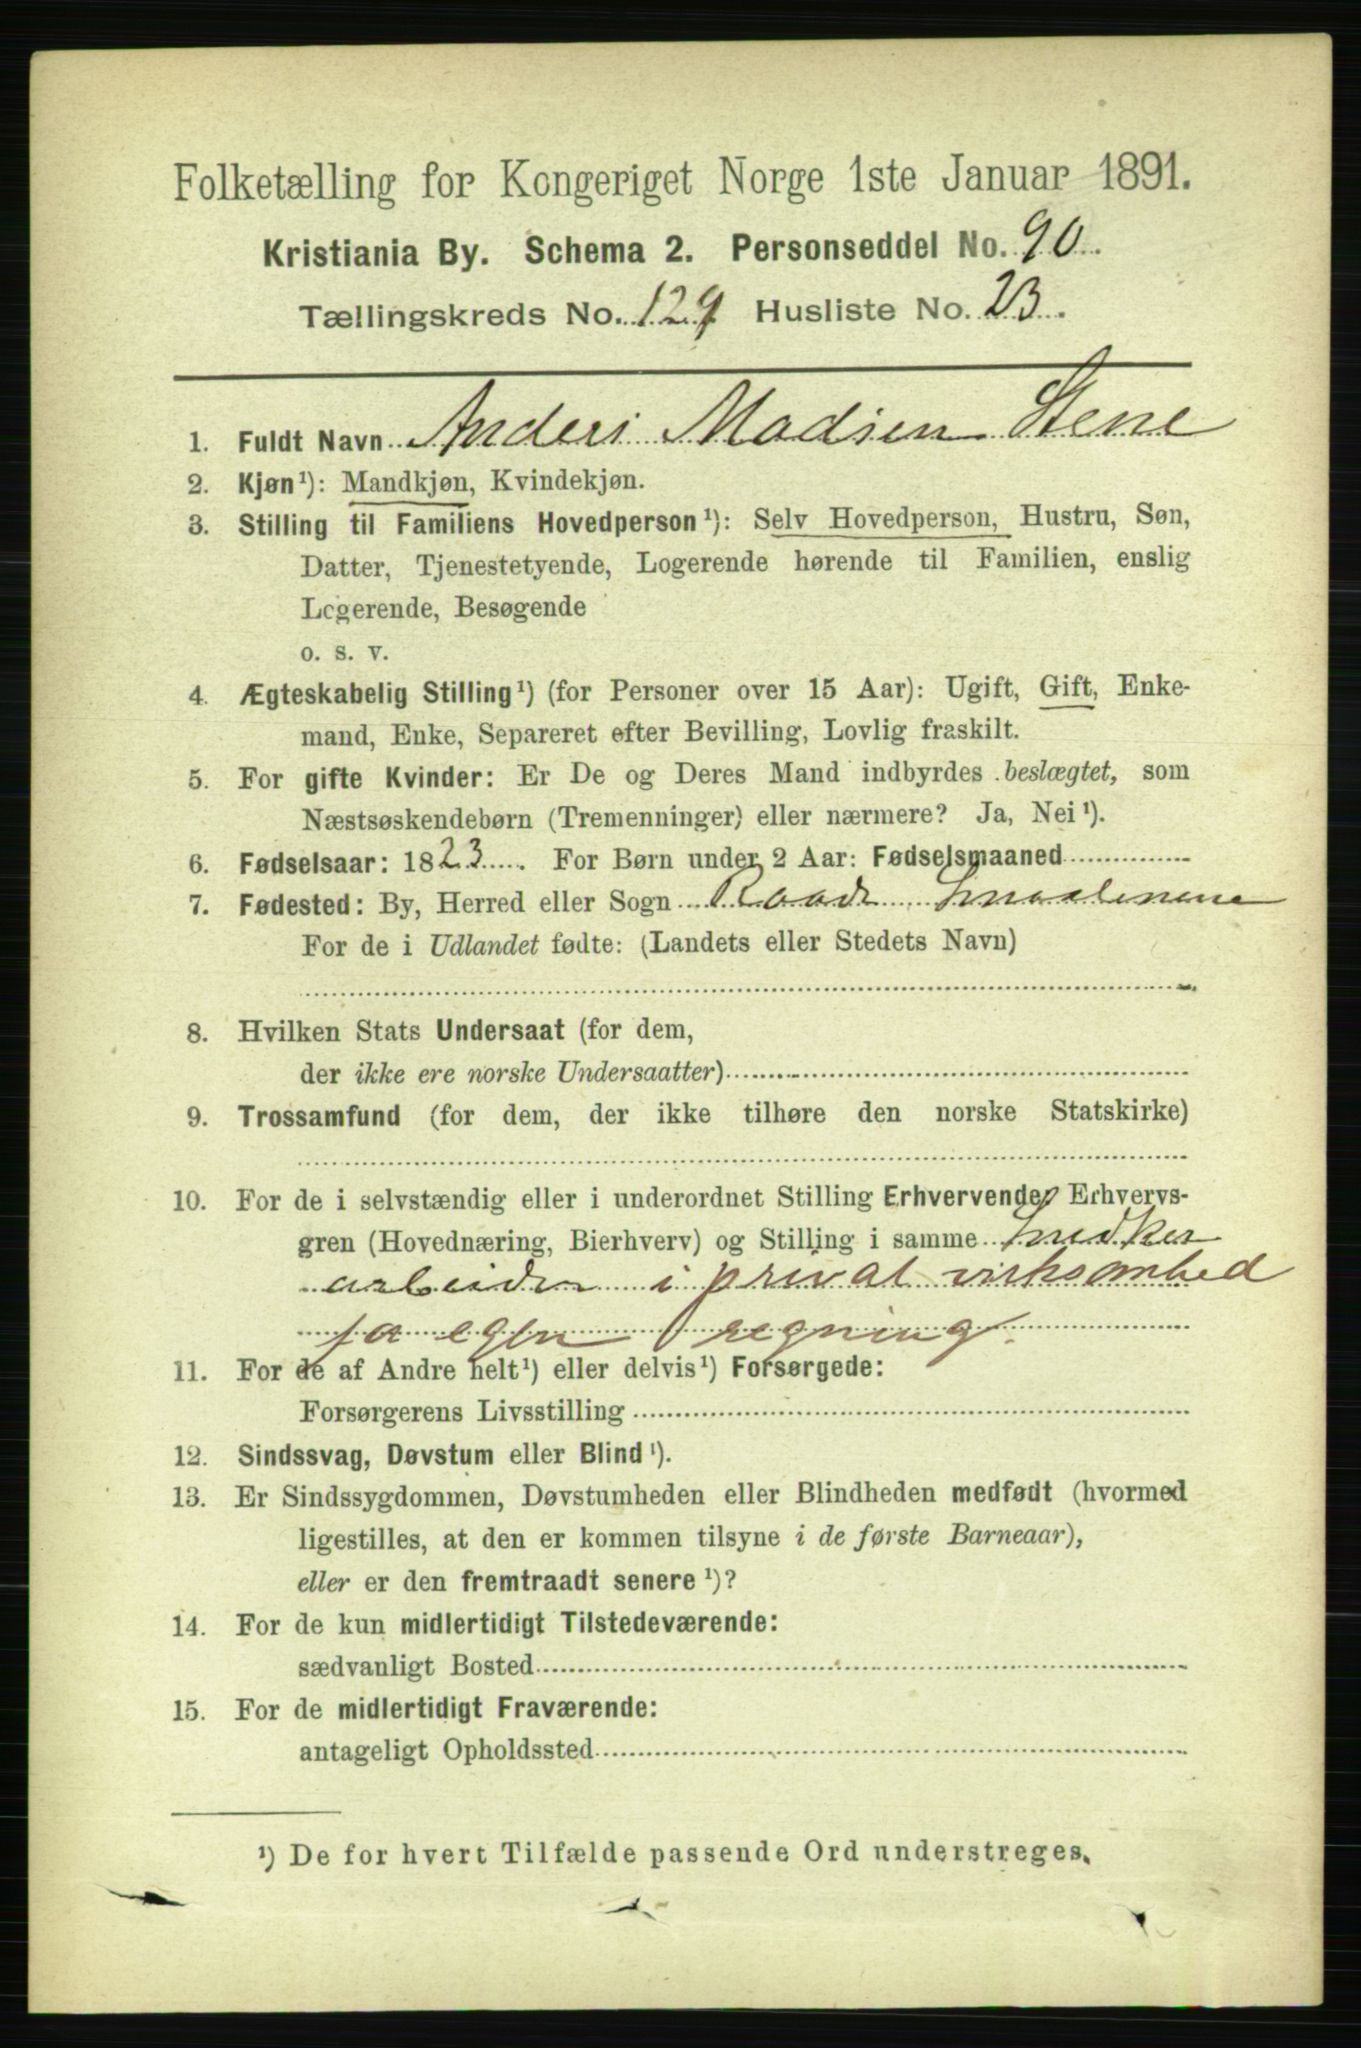 Folketælling for Kongeriget Norge 1ste Januar 1891.
Kristiania By. Schema 2. Personseddel No. 90.
Tællingskreds No. 129 Husliste No. 23.
1. Fuldt Navn Anders Madsen Stene
2. Kjøn¹): Mandkjøn, Kvindekjøn.
3. Stilling til Familiens Hovedperson¹): Selv Hovedperson, Hustru, Søn,
Datter, Tjenestetyende, Logerende hørende til Familien, enslig
Logerende, Besøgende
o. s. v.
4. Ægteskabelig Stilling¹) (for Personer over 15 Aar): Ugift, Gift, Enke-
mand, Enke, Separeret efter Bevilling, Lovlig fraskilt.
5. For gifte Kvinder: Er De og Deres Mand indbyrdes beslægtet, som
Næstsøskendebørn (Tremenninger) eller nærmere? Ja, Nei¹).
6. Fødselsaar: 1823. For Børn under 2 Aar: Fødselsmaaned
7. Fødested: By, Herred eller Sogn Raade Smaalenene
For de i Udlandet fødte: (Landets eller Stedets Navn)
8. Hvilken Stats Undersaat (for dem,
der ikke ere norske Undersaatter)
9. Trossamfund (for dem, der ikke tilhøre den norske Statskirke)
10. For de i selvstændig eller i underordnet Stilling Erhvervende: Erhvervs-
gren (Hovednæring, Bierhverv) og Stilling i samme Snedker
arbeider i privat virksomhed
fo egen regning
11. For de af Andre helt¹) eller delvis¹) Forsørgede:
Forsørgerens Livsstilling
12. Sindssvag, Døvstum eller Blind¹).
13. Er Sindssygdommen, Døvstumheden eller Blindheden medfødt (hvormed
ligestilles, at den er kommen tilsyne i de første Barneaar),
eller er den fremtraadt senere¹)?
14. For de kun midlertidigt Tilstedeværende:
sædvanligt Bosted
15. For de midlertidigt Fraværende:
antageligt Opholdssted
¹) De for hvert Tilfælde passende Ord understreges.